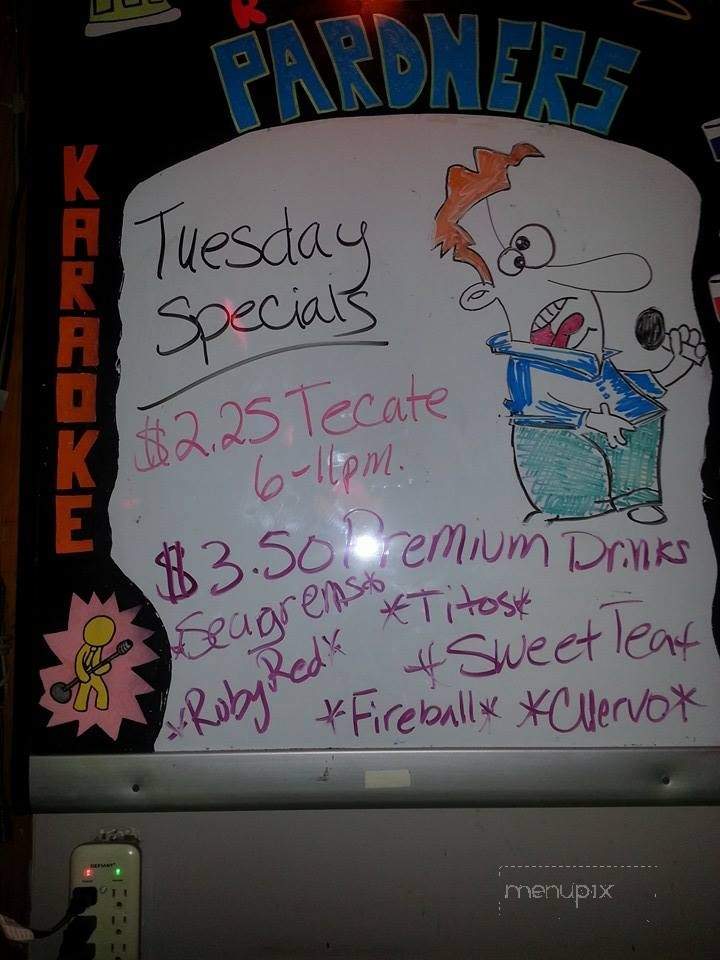 R
PARDNERS
KARAOKE
Tuesday
Specials
$2.25 Tecate
6-11pm.
$3.50 Premium Drinks
*Seagrems*
*Titos*
*Sweet Tea*
*Ruby Red*
*Fireball* *Cuervo*
DEFIANT
menupix